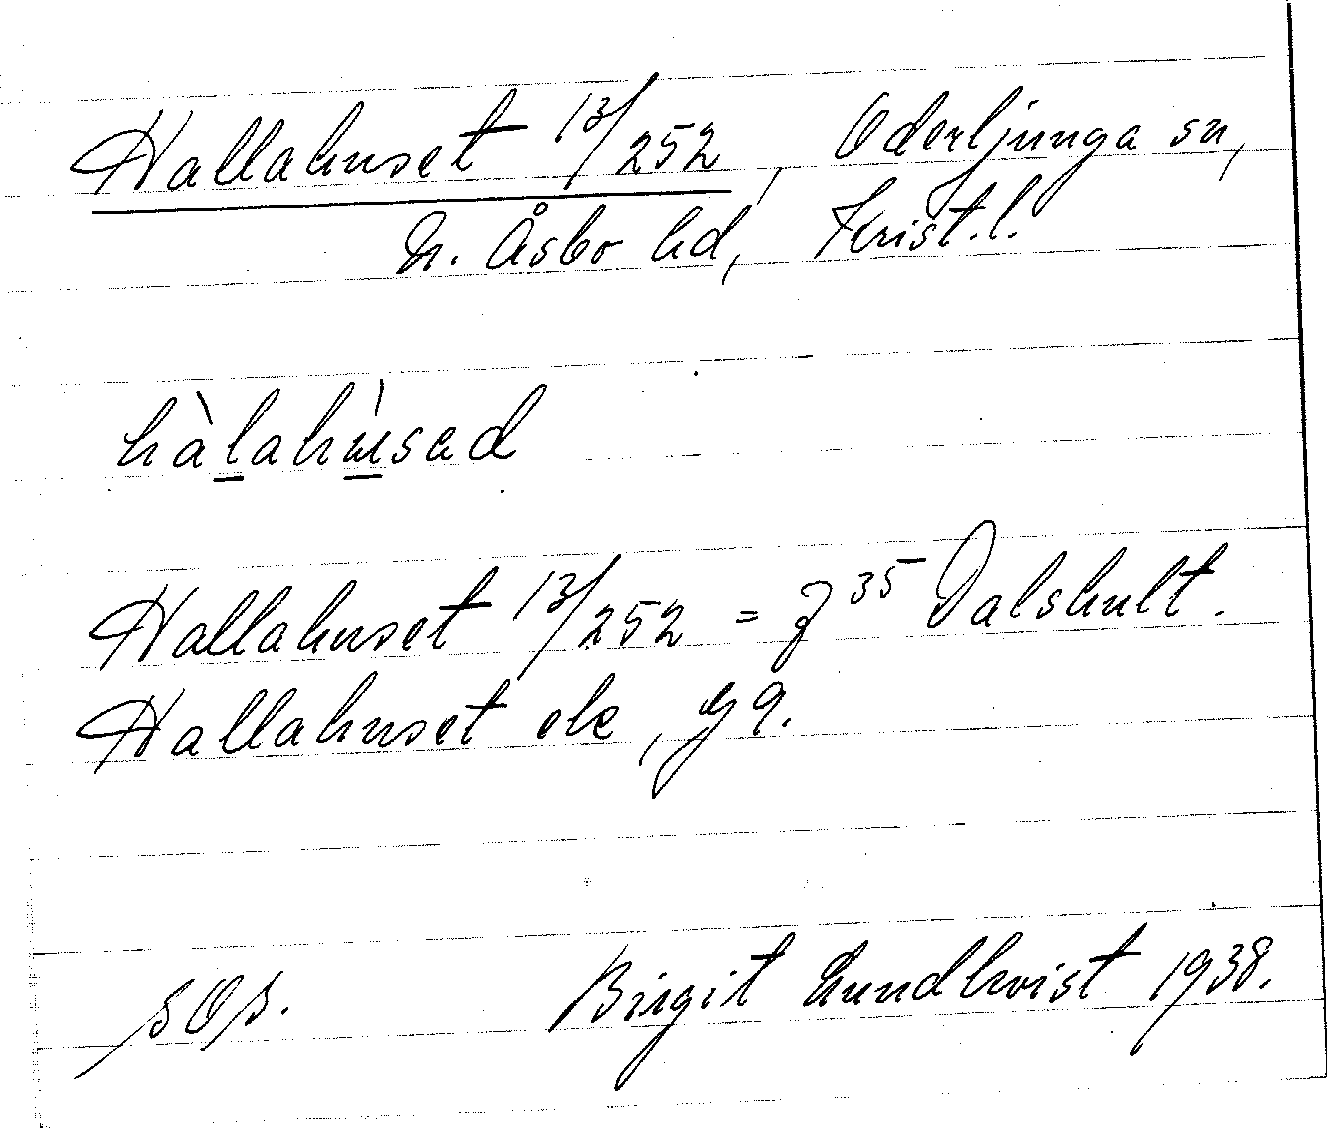 Hallahuset 13/252, Oderljunga sn,
N. Åsbo hd, Krist. l.
hàlahùsad
Hallahuset 13/252 = J 35 Dalshult.
Hallahuset ek, g 9.
sOs.
Birgit Lundkvist 1938.